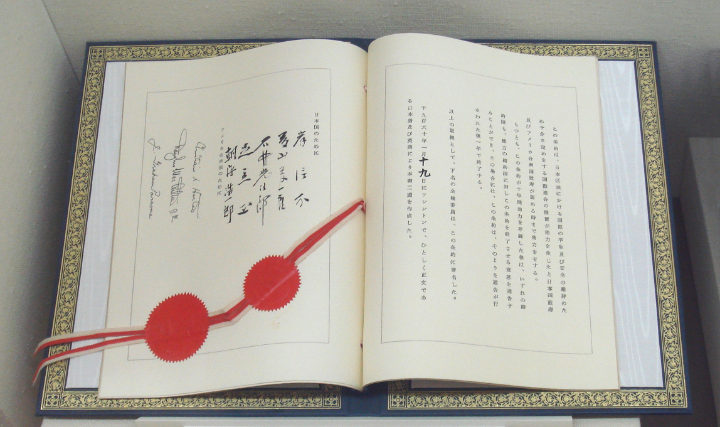 この条約は、日本区域における国際の平和及び安全の維持のた
め十分な定めをする国際連合の措置が効力を生じたと日本国政府
及びアメリカ合衆国政府が認める時まで効力を有する。
もつとも、この条約が十年間効力を存続した後は、いずれの締
約国も、他方の締約国に対しこの条約を終了させる意思を通告す
ることができ、その場合には、この条約は、そのような通告が行
なわれた後一年で終了する。
以上の証拠として、下名の全権委員は、この条約に署名した。
千九百六十年一月十九日にワシントンで、ひとしく正文であ
る日本語及び英語により本書二通を作成した。
日本国のために
岸信介
藤山愛一郎
石井光次郎
足立正
朝海浩一郎
アメリカ合衆国のために
J. Graham Parsons